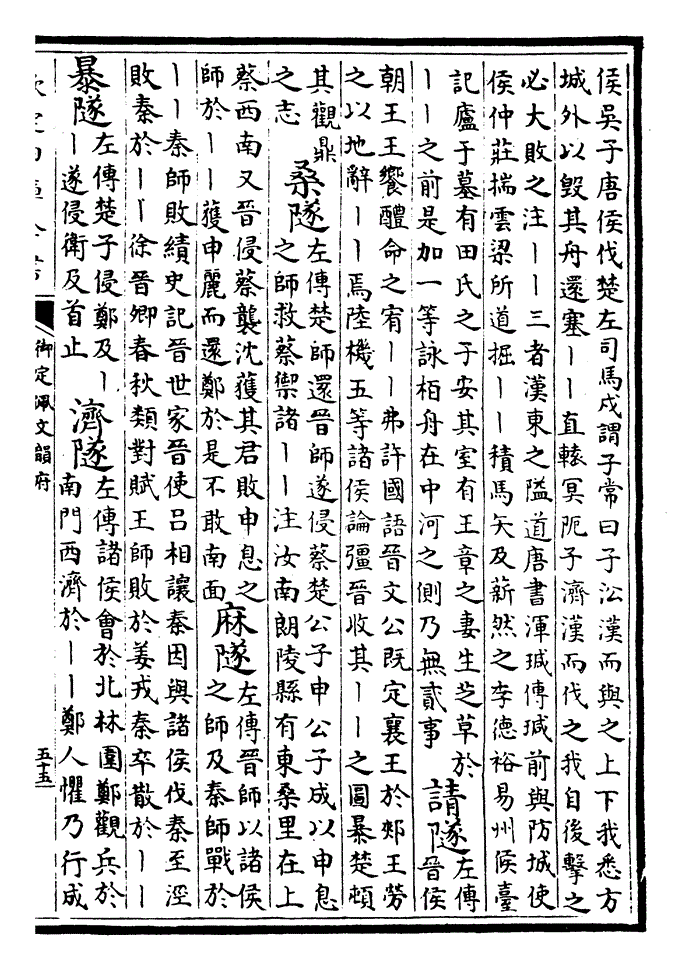 侯吳子唐侯伐楚左司馬戍謂子常曰子沿漢而與之上下我悉方
城外以毀其舟還塞丨丨直轅冥阨子濟漢而伐之我自後擊之
必大敗之注丨丨三者漢東之隘道唐書渾瑊傳瑊前與防城使
侯仲莊揣雲梁所道掘丨丨積馬矢及薪然之李德裕易州候臺
記廬于墓有田氏之子安其室有王章之妻生芝草於
丨丨之前是加一等詠栢舟在中河之側乃無貳事
請隧
左傳
晉侯
朝王王饗醴命之宥丨丨弗許國語晉文公既定襄王於郟王勞
之以地辭丨丨焉陸機五等諸侯論彊晉收其丨丨之圖暴楚頓
其觀鼎
之志
桑隧
左傳楚師還晉師遂侵蔡楚公子申公子成以申息
之師救蔡禦諸丨丨注汝南朗陵縣有東桑里在上
蔡西南又晉侵蔡襲沈獲其君敗申息之
師於丨丨獲申麗而還鄭於是不敢南面
麻隧
左傳晉師以諸侯
之師及秦師戰於
丨丨秦師敗績史記晉世家晉使呂相讓秦因與諸侯伐秦至涇
敗秦於丨丨徐晉卿春秋類對賦王師敗於姜戎秦卒散於丨丨
暴隧
左傳楚子侵鄭及丨
丨遂侵衛及首止
濟隧
左傳諸侯會於北林圍鄭觀兵於
南門西濟於丨丨鄭人懼乃行成
欽定四庫全書
御定佩文韻府
五十五